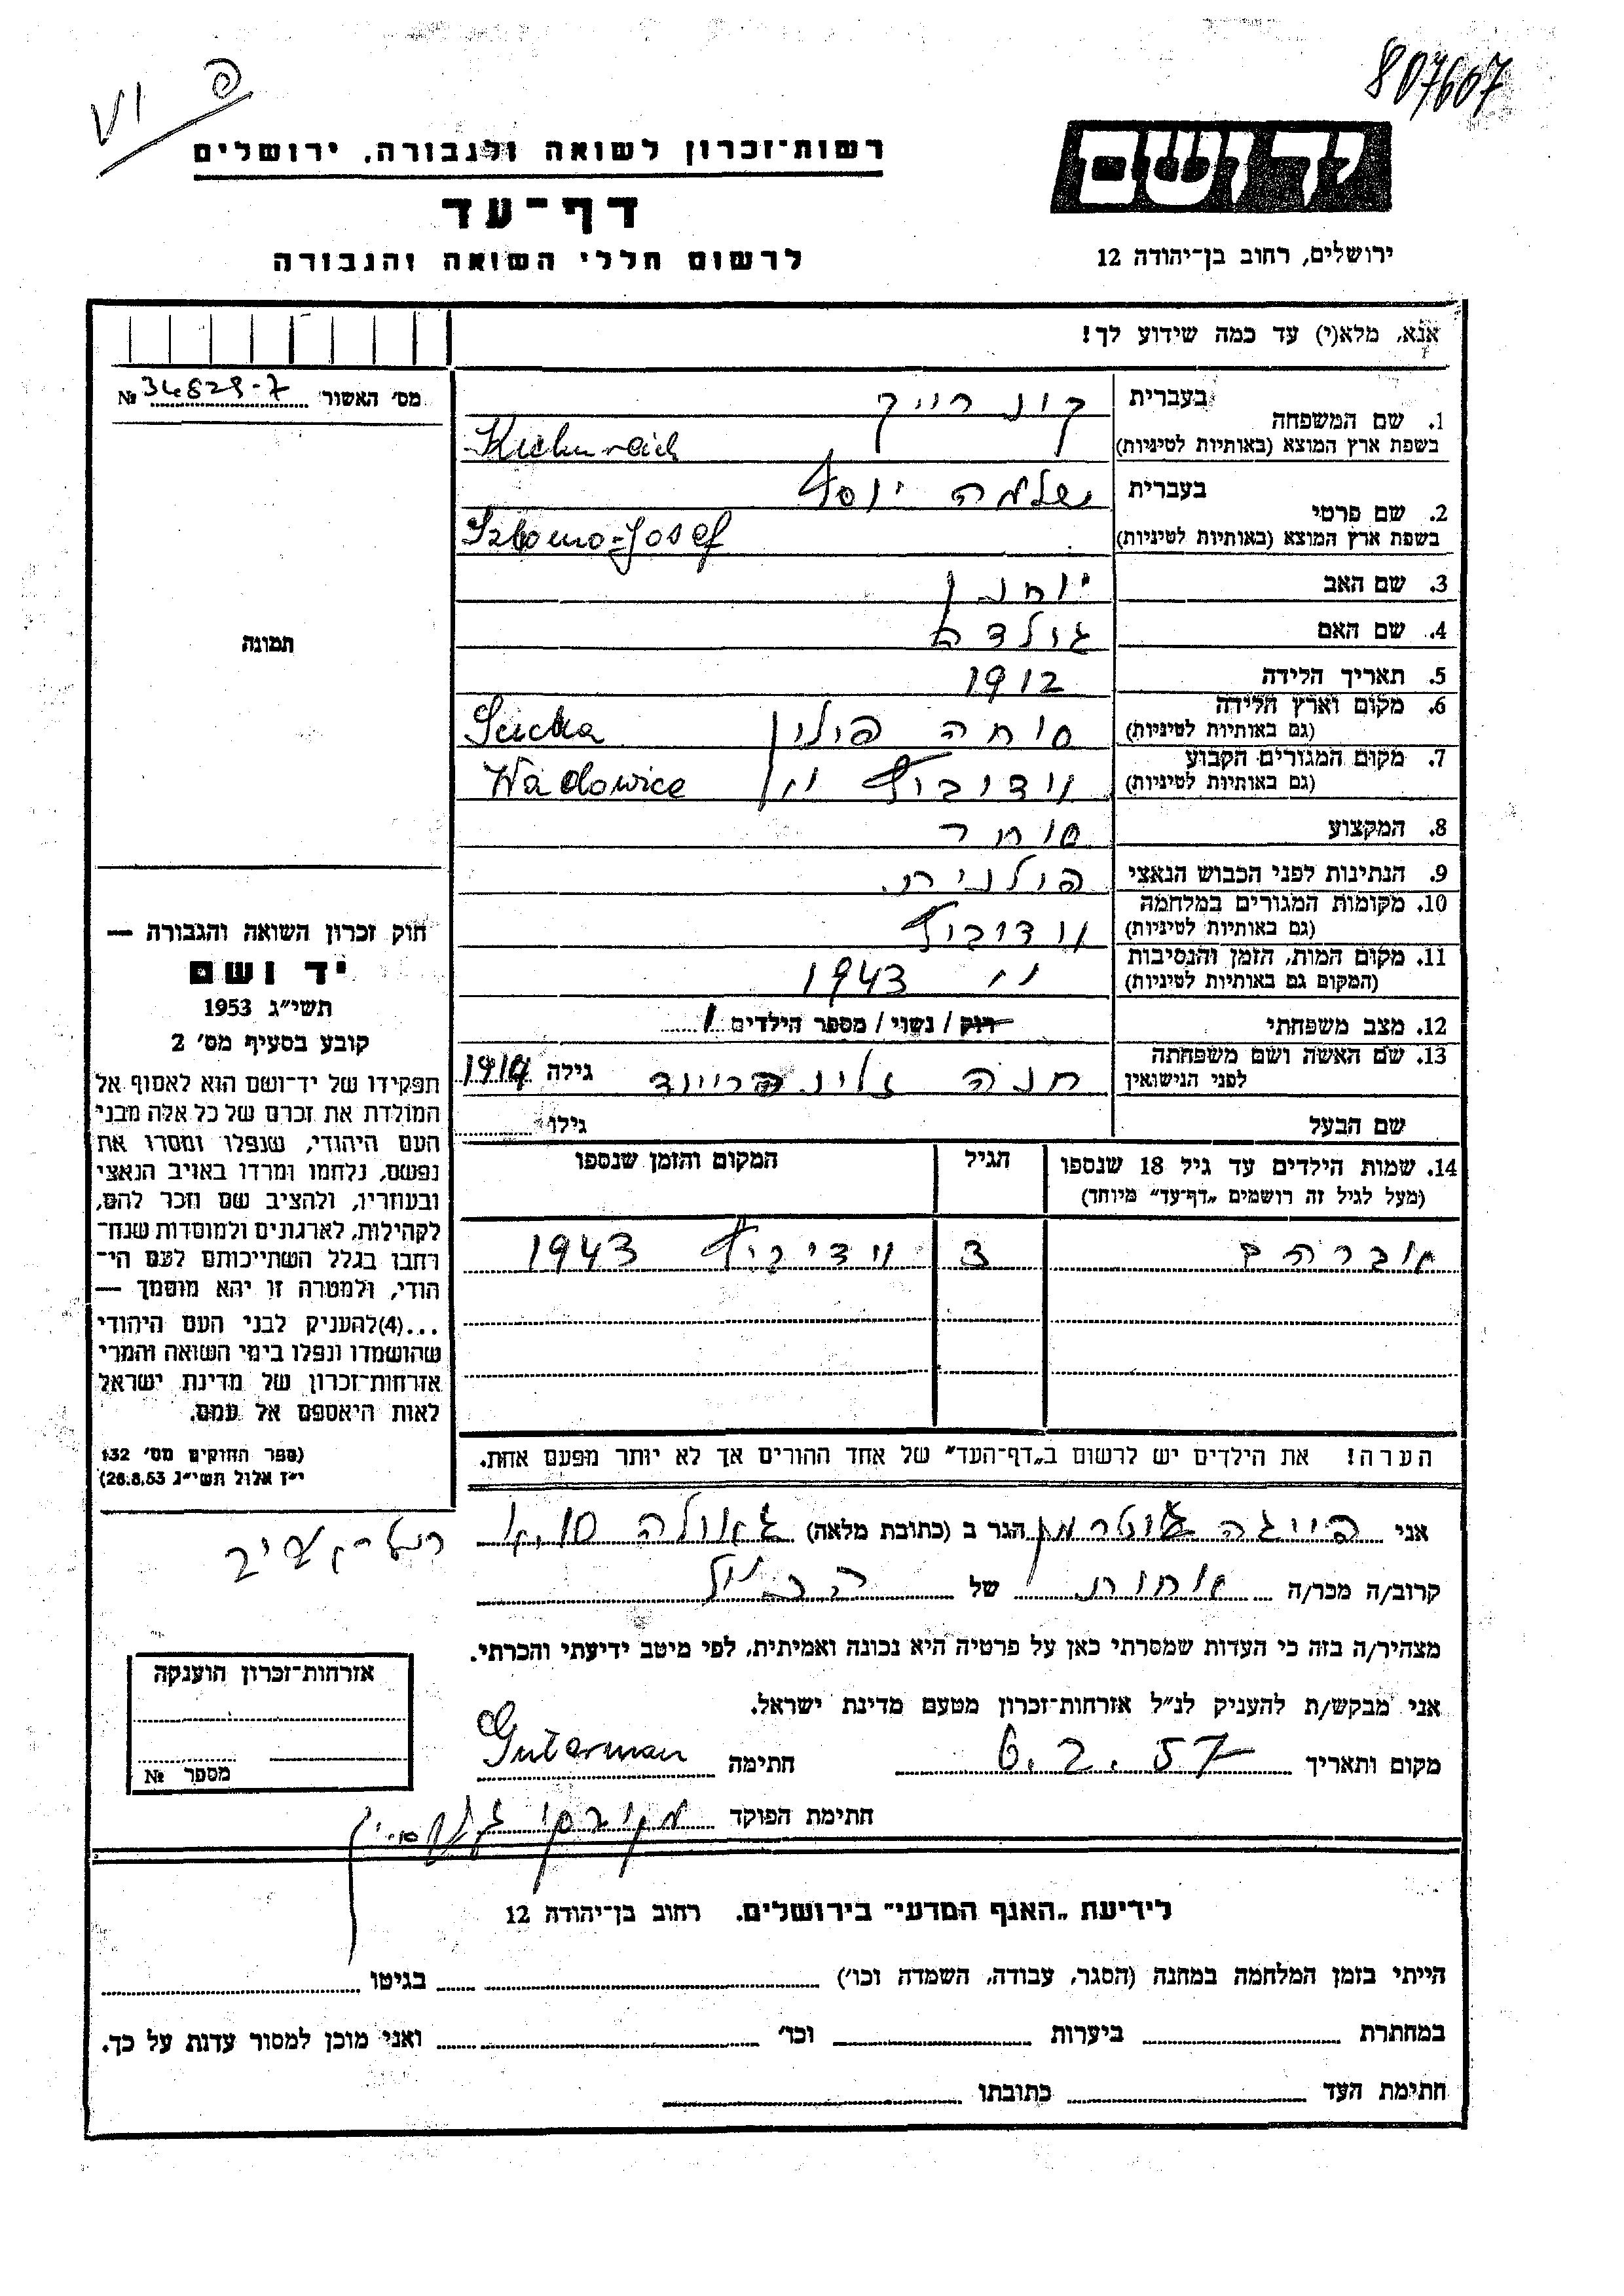 807607
פ VI
יד ושם
רשות־זכרון לשואה ולגבורה, ירושלים
דף־עד
לרשום חללי השואה והגבורה
ירושלים, רחוב בן־יהודה 12
אנא, מלא(י) עד כמה שידוע לך!
מס׳ האשור 34828-7 №
תמונה
1. שם המשפחה
בעברית קונרייך
בשפת ארץ המוצא (באותיות לטיניות) Kuhnreich
2. שם פרטי
בעברית שלמה יוסף
בשפת ארץ המוצא (באותיות לטיניות) Szlomo-Josef
3. שם האב יוחנן
4. שם האם גולדה
5. תאריך הלידה 1912
6. מקום וארץ הלידה
(גם באותיות לטיניות) סוחה פולין Sucha
7. מקום המגורים הקבוע
(גם באותיות לטיניות) Wadowice
8. המקצוע סוחר
9. הנתינות לפני הכבוש הנאצי פולנית.
10. מקומות המגורים במלחמה
(גם באותיות לטיניות)
11. מקום המות, הזמן והנסיבות
(המקום גם באותיות לטיניות) 1943 ״
12. מצב משפחתי רוק / נשוי / מספר הילדים 1
13. שם האשה ושם משפחתה
לפני הנישואין חנה גילה 1914
שם הבעל גילו
14. שמות הילדים עד גיל 18 שנספו
(מעל לגיל זה רושמים „דף־עד״ מיוחד)
הגיל
המקום והזמן שנספו
אברהם 3 1943
הערה! את הילדים יש לרשום ב„דף־העד״ של אחד ההורים אך לא יותר מפעם אחת.
חוק זכרון השואה והגבורה —
יד ושם
תשי״ג 1953
קובע בסעיף מס׳ 2
תפקידו של יד־ושם הוא לאסוף אל
המולדת את זכרם של כל אלה מבני
העם היהודי, שנפלו ומסרו את
נפשם, נלחמו ומרדו באויב הנאצי
ובעוזריו, ולהציב שם וזכר להם,
לקהילות, לארגונים ולמוסדות שנח־
רחבו בגלל השתייכותם לעם הי־
הודי, ולמטרה זו יהא מוסמך —
...(4)להעניק לבני העם היהודי
שהושמדו ונפלו בימי השואה והמרי
אזרחות־זכרון של מדינת ישראל
לאות היאספם אל עמם.
(ספר החוקים מס׳ 132
י״ז אלול תשי״ג 28.8.53)
אני פייגה גוטרמן הגר ב (כתובת מלאה) גאולה 10 תל-אביב
קרוב/ה מכר/ה אחות של הנ״ל
מצהיר/ה בזה כי העדות שמסרתי כאן על פרטיה היא נכונה ואמיתית, לפי מיטב ידיעתי והכרתי.
אני מבקש/ת להעניק לנ״ל אזרחות־זכרון מטעם מדינת ישראל.
מקום ותאריך 6.2.57 חתימה Guterman
חתימת הפוקד
אזרחות־זכרון הוענקה
מספר №
לידיעת „האגף המדעי״ בירושלים. רחוב בן־יהודה 12
הייתי בזמן המלחמה במחנה (הסגר, עבודה, השמדה וכו׳) בגיטו
במחתרת ביערות וכו׳ ואני מוכן למסור עדות על כך.
חתימת העד כתובתו